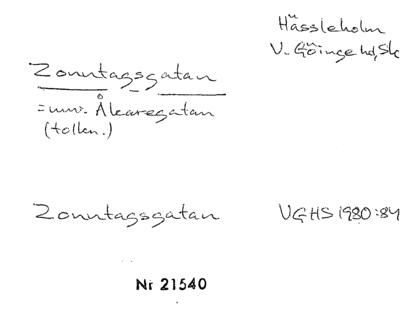 Hässleholm
V. Göinge hd, Sk
Zonntagsgatan
= nuv. Åkaregatan
(tolkn.)
Zonntagsgatan VGHS 1980:84
Nr 21540